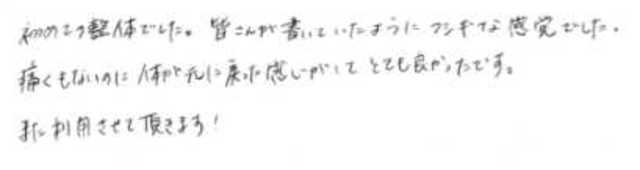 初めての整体でした。皆さんが書いていたように フシギな感覚でした。
痛くもないのに 体が元に戻った感じがして とても良かったです。
また利用させて頂きます！